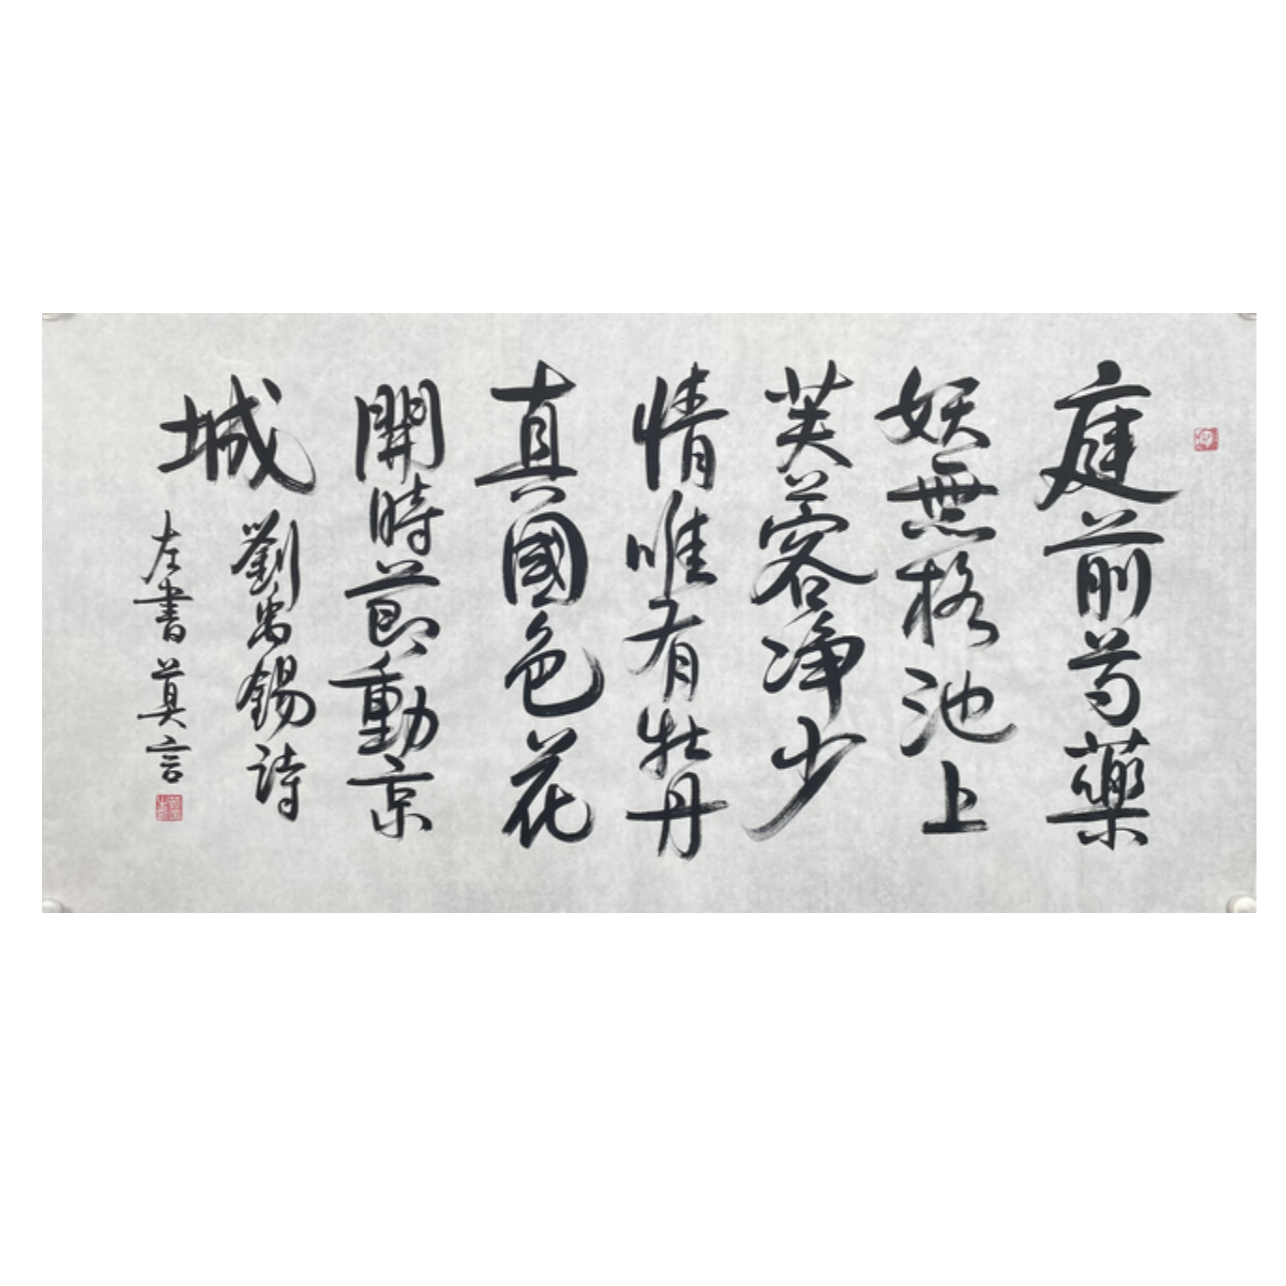 庭前芍藥
妖無格池上
芙蓉净少
情唯有牡丹
真國色花
開時節動京
城 劉禹錫詩
左書莫言